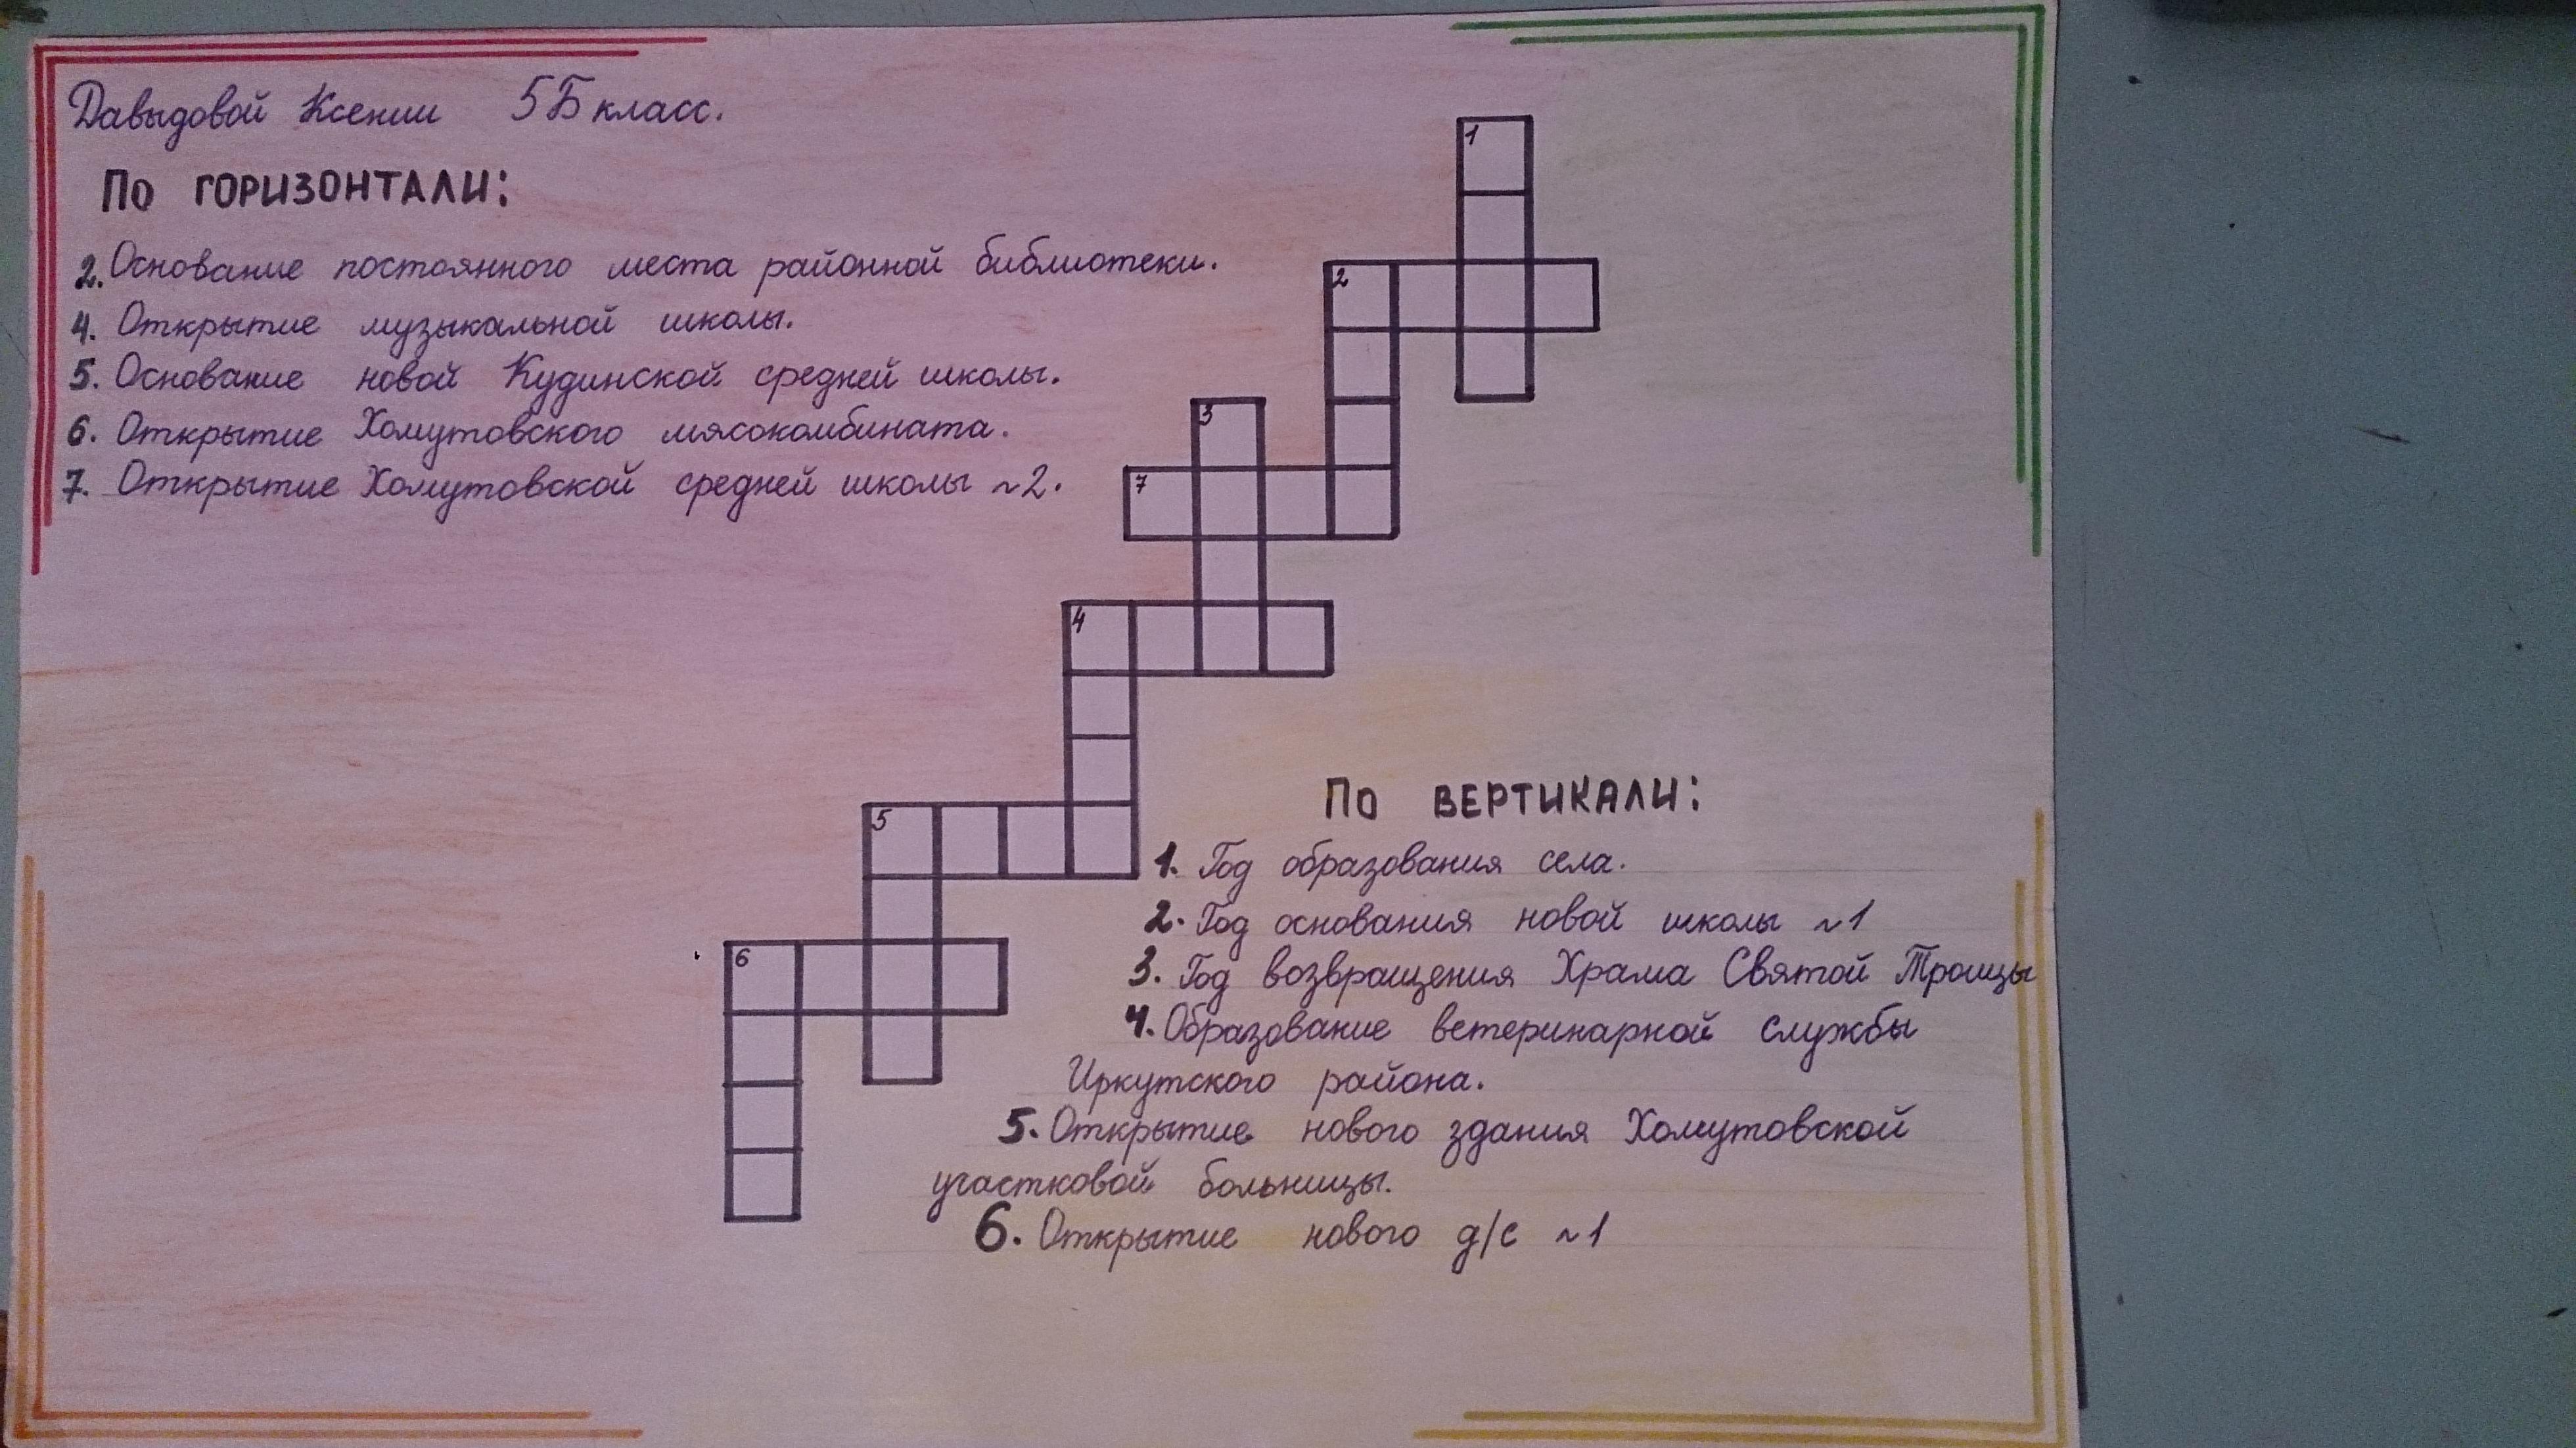 Давыдовой Ксении 5Б класс.
По горизонтали:
2. Основание постоянного места районной библиотеки.
4. Открытие музыкальной школы.
5. Основание новой Кудинской средней школы.
6. Открытие Хомутовского мясокомбината.
7. Открытие Хомутовской средней школы ~2.
1
2
3
7
4
5
6
По вертикали:
1. Год образования села.
2. Год основания новой школы ~1
3. Год возвращения Храма Святой Троицы
4. Образование ветеринарной службы
Иркутского района.
5. Открытие нового здания Хомутовской
участковой больницы.
6. Открытие нового д/с ~1